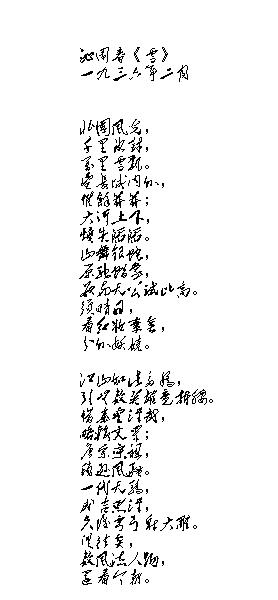 沁园春《雪》
一九三六年二月
北国风光，
千里冰封，
万里雪飘。
望长城内外，
惟余莽莽；
大河上下，
顿失滔滔。
山舞银蛇，
原驰蜡象，
欲与天公试比高。
须晴日，
看红妆素裹，
分外妖娆。
江山如此多娇，
引无数英雄竞折腰。
惜秦皇汉武，
略输文采；
唐宗宋祖，
稍逊风骚。
一代天骄，
成吉思汗，
只识弯弓射大雕。
俱往矣，
数风流人物，
还看今朝。